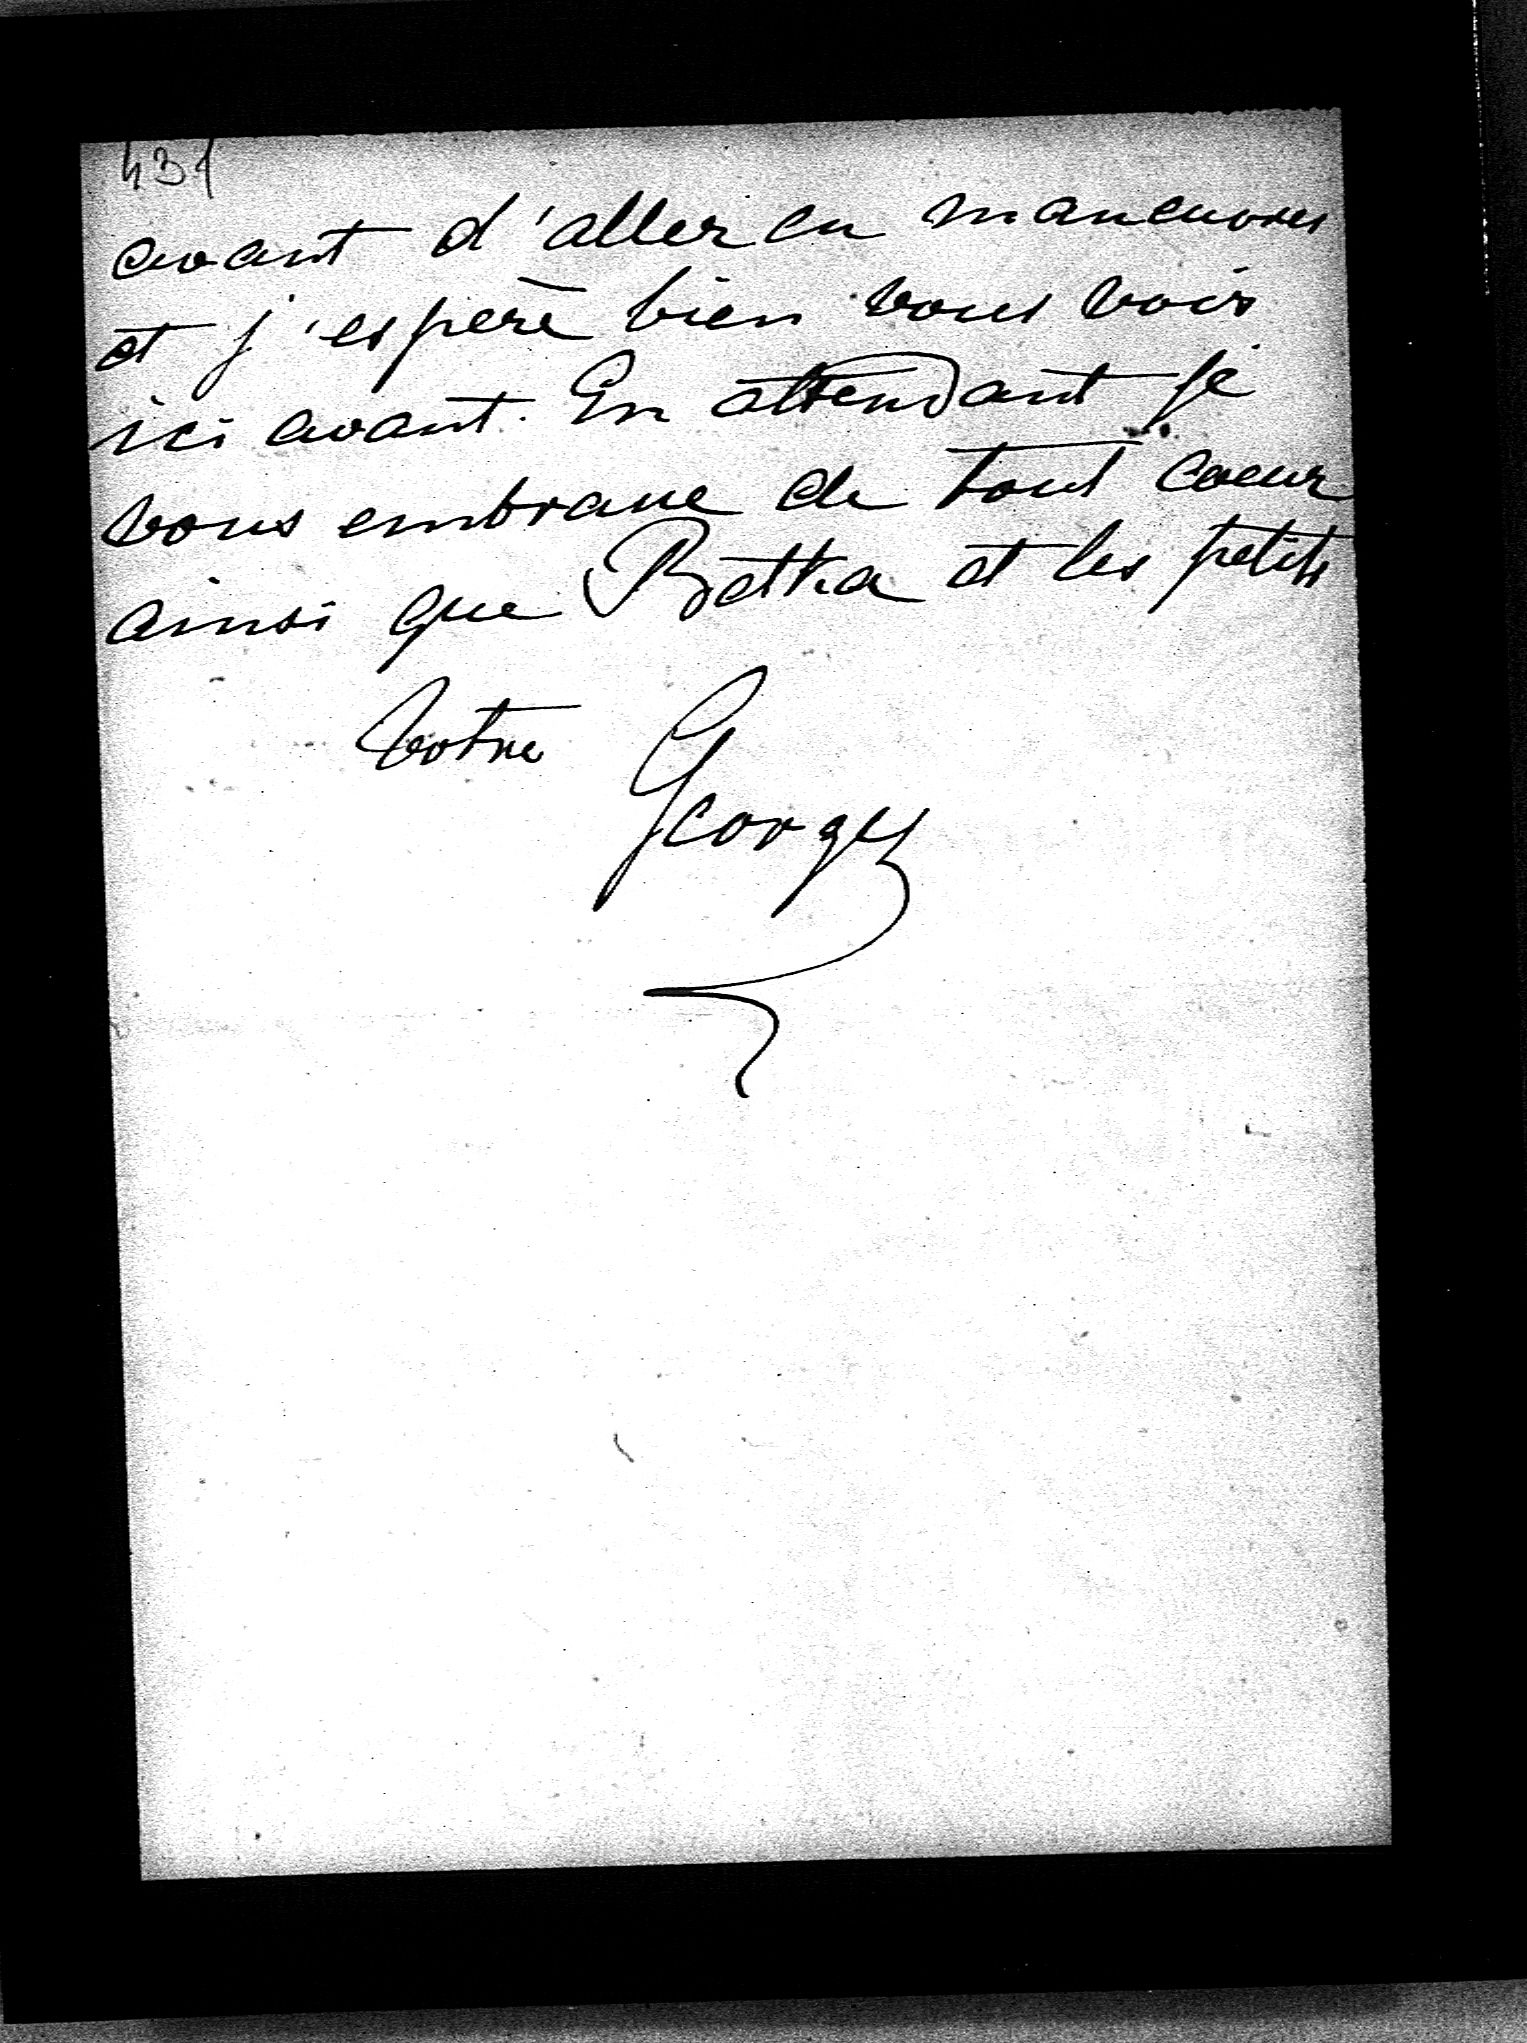 431
avant d'aller en manœuvres
et j'espère bien vous voir
ici avant. En attendant je
vous embrasse de tout coeur
ainsi que Betka et les petits
Votre Georges